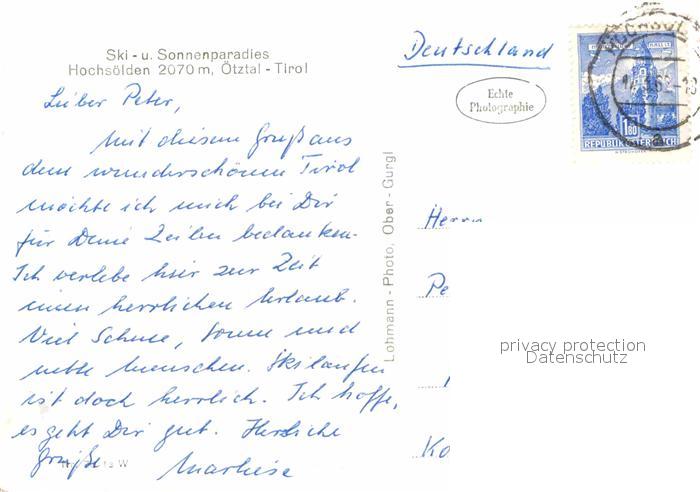 Ski - u. Sonnenparadies
Hochsölden 2070 m, Ötztal - Tirol
Lieber Peter,
mit diesem Gruß aus
dem wunderschönen Tirol
möchte ich mich bei Dir
für Deine Zeilen bedanken.
Ich verlebe hier zur Zeit
einen herrlichen Urlaub.
Viel Schnee, Sonne und
nette Menschen. Skilaufen
ist doch herrlich. Ich hoffe,
es geht Dir gut. Herzliche
Grüße Marliese
W
Lohmann - Photo, Ober - Gurgl
Deutschland
Echte
Photographie
1.80
REPUBLIK ÖSTERREICH
Herrn
Pe
Ko
privacy protection
Datenschutz